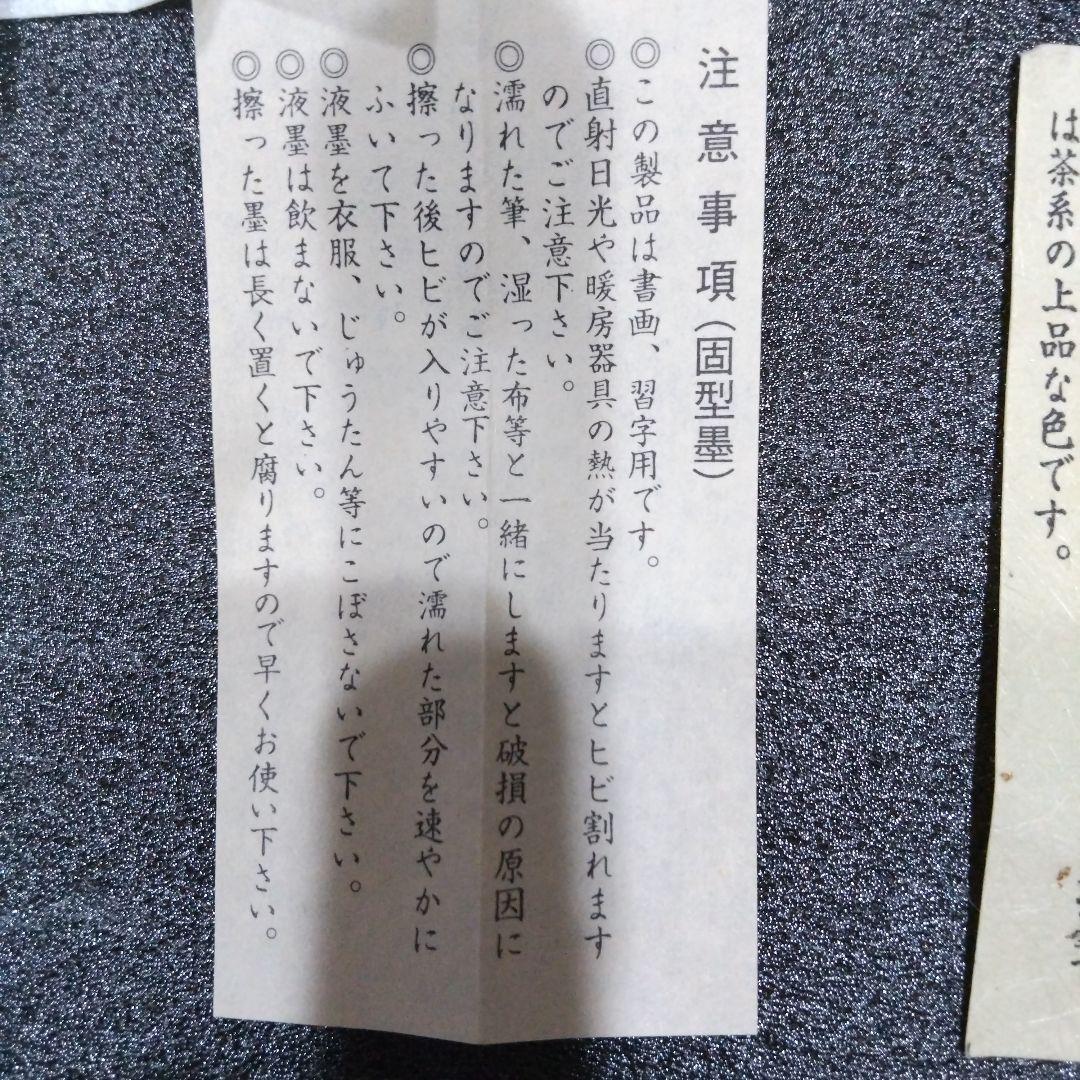 は茶系の上品な色です。
注意事項(固型墨)
◎この製品は書画、習字用です。
◎直射日光や暖房器具の熱が当たりますとヒビ割れます
のでご注意下さい。
◎濡れた筆、湿った布等と一緒にしますと破損の原因に
なりますのでご注意下さい。
◎擦った後ヒビが入りやすいので濡れた部分を速やかに
ふいて下さい。
◎液墨を衣服、じゅうたん等にこぼさないで下さい。
◎液墨は飲まないで下さい。
◎擦った墨は長く置くと腐りますので早くお使い下さい。